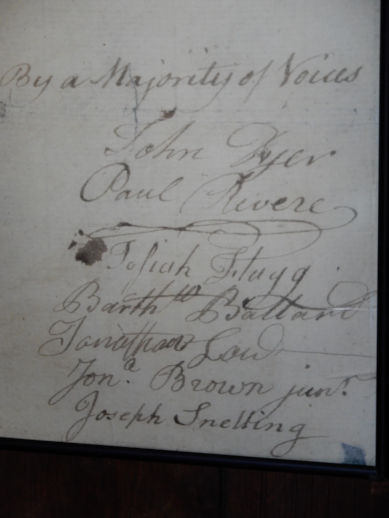 By a Majority of Voices
John Dyer
Paul Rivere
Josiah Flagg
Barth^w Ballard
Jonathan Law
Jon.^a Brown jun^r.
Joseph Snelling